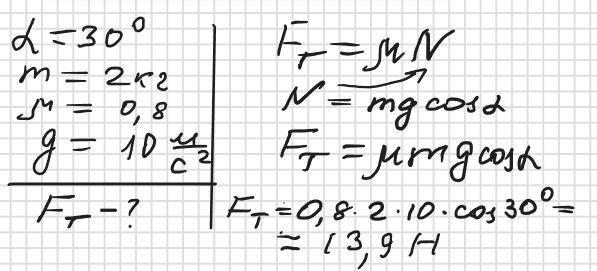 α = 30°
m = 2 кг
μ = 0,8
g = 10 м/с²
Fт - ?
Fт = μN
N = mg cosα
Fт = μmg cosα
Fт = 0,8 · 2 · 10 · cos 30° =
≈ 13,9 Н